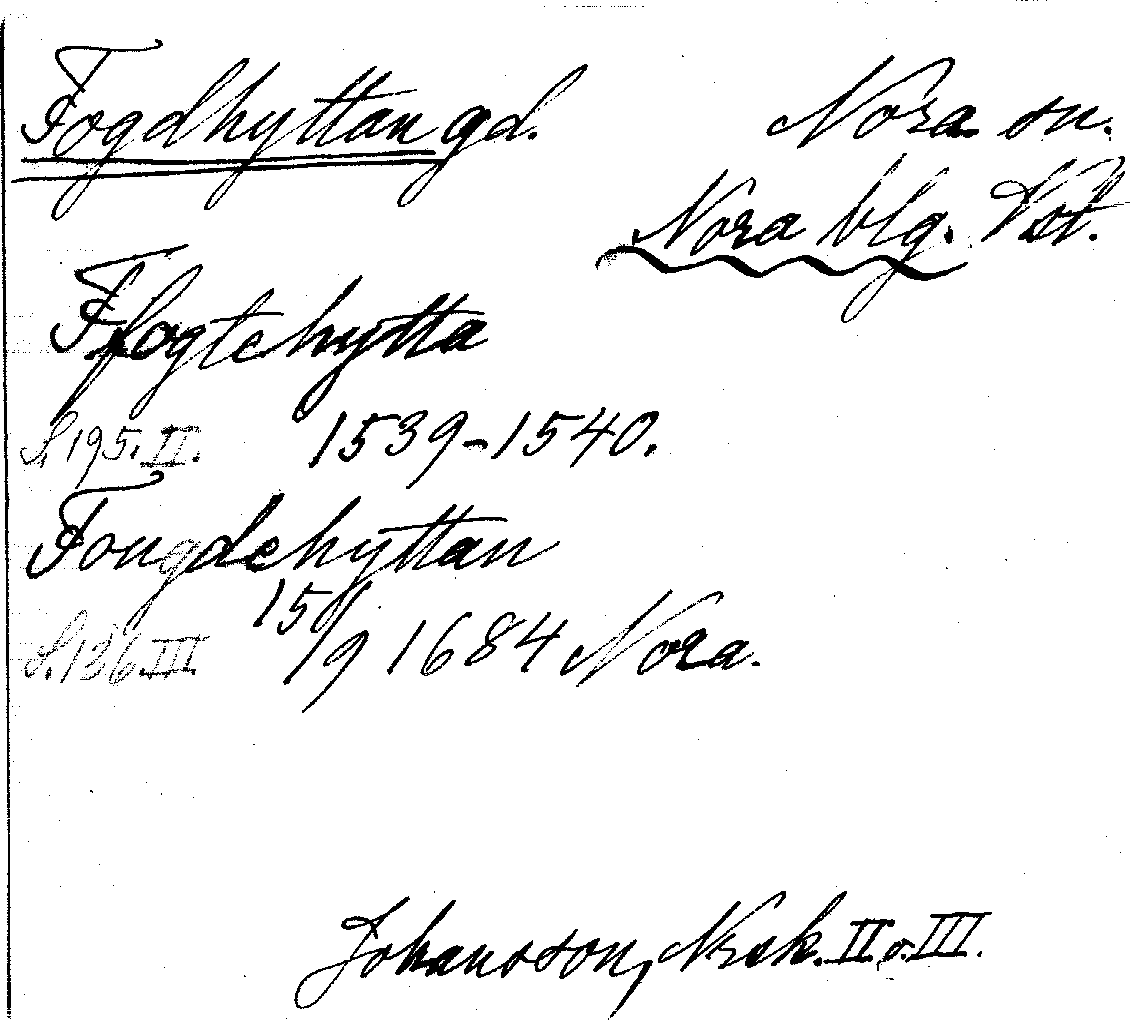 Fogdhyttan gd. Nora sn.
Nora blg. Vst.
Ffogtehytta
S. 195. II. 1539-1540.
Fougdehyttan
S. 136. III. 15/9 1684 Nora.
Johansson, Nrsk. II o. III.